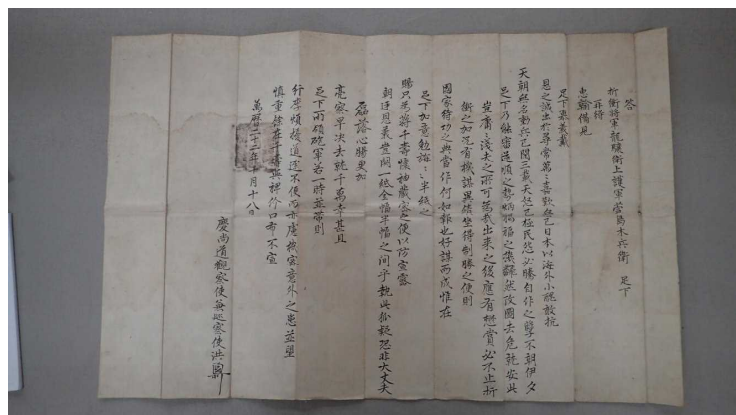 答
折衝將軍龍驤衛上護軍萱島木兵衛 足下
得
惠翰備見
足下慕義戴
恩之誠出於尋常萬〻喜歎無已日本以海外小醜敢抗
天朝無名動兵已閱三載天怒已極民怨必勝自作之孽不朝伊夕
足下乃能審逆順之勢炳禍福之幾飜然改圖去危就安此
豈庸〻淺夫之所可爲哉出來之後應有懋賞必不止折
衝之加況有機謀異績坐得制勝之便則
國家待功之典當作何如報也好謀而成惟在
足下加意勉旃〻〻半紙之
賜只爲蔣千壽懷袖藏密之便以防宣露
朝廷恩義豈間一紙全幅半幅之間乎執此拾疑恐非大丈夫
磊落心膓更加
亮察早決去就千萬幸甚且
足下所領砲軍若一時並帶則
行李煩擾道途不便而亦慮機密意外之患並望
愼重餘在千壽與口布不宣
萬曆二十二年十月十八日
慶尚道觀察使兼巡察使洪